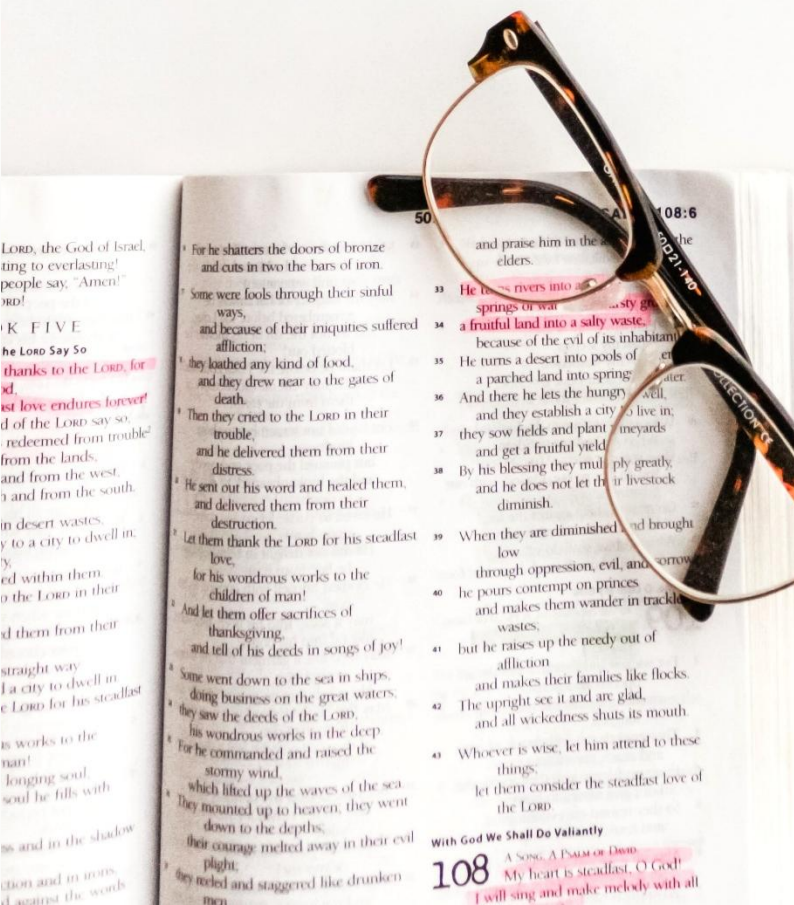 LORD, the God of Israel,
ting to everlasting!
people say, "Amen!"
ORD!
K FIVE
he LORD Say So
thanks to the LORD, for
od,
ast love endures forever!
d of the LORD say so,
redeemed from trouble
from the lands,
and from the west,
and from the south.
in desert wastes,
y to a city to dwell in;
y,
ed within them.
o the LORD in their
d them from their
straight way
l a city to dwell in.
e LORD for his steadfast
s works to the
man!
longing soul,
soul he fills with
ss and in the shadow
ction and in irons,
d against the words
For he shatters the doors of bronze
and cuts in two the bars of iron.
Some were fools through their sinful
ways,
and because of their iniquities suffered
affliction;
they loathed any kind of food,
and they drew near to the gates of
death.
Then they cried to the LORD in their
trouble,
and he delivered them from their
distress.
He sent out his word and healed them,
and delivered them from their
destruction.
Let them thank the LORD for his steadfast
love,
for his wondrous works to the
children of man!
And let them offer sacrifices of
thanksgiving,
and tell of his deeds in songs of joy!
Some went down to the sea in ships,
doing business on the great waters;
they saw the deeds of the LORD,
his wondrous works in the deep.
For he commanded and raised the
stormy wind,
which lifted up the waves of the sea.
They mounted up to heaven; they went
down to the depths;
their courage melted away in their evil
plight;
they reeled and staggered like drunken
men
50 108:6
and praise him in the the
elders.
33 He rivers into a
springs of
34 a fruitful land into a salty waste,
because of the evil of its inhabitant
35 He turns a desert into pools of
a parched land into springs ater.
36 And there he lets the hungry well,
and they establish a city to live in;
37 they sow fields and plant vineyards
and get a fruitful yield.
38 By his blessing they multiply greatly,
and he does not let their livestock
diminish.
39 When they are diminished and brought
low
through oppression, evil, and sorrow,
40 he pours contempt on princes
and makes them wander in trackle
wastes;
41 but he raises up the needy out of
affliction
and makes their families like flocks.
42 The upright see it and are glad,
and all wickedness shuts its mouth.
43 Whoever is wise, let him attend to these
things;
let them consider the steadfast love of
the LORD.
With God We Shall Do Valiantly
108 A SONG. A PSALM OF DAVID.
My heart is steadfast, O God!
I will sing and make melody with all
50□21-140
OLLECTION CE